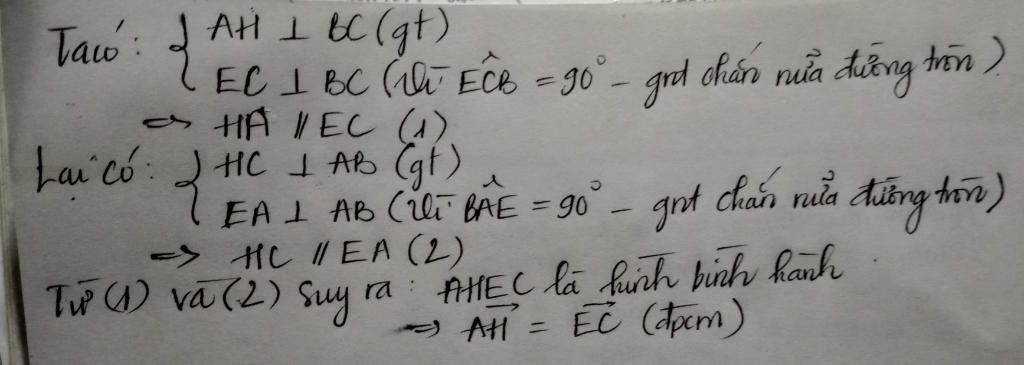 Ta có: { AH ⊥ BC (gt)
EC ⊥ BC (Vì EĈB = 90° - gnt chắn nửa đường tròn)
=> HA // EC (1)
Lại có: { HC ⊥ AB (gt)
EA ⊥ AB (Vì BÂE = 90° - gnt chắn nửa đường tròn)
=> HC // EA (2)
Từ (1) và (2) suy ra: AHEC là hình bình hành.
=> \overrightarrow{AH} = \overrightarrow{EC} (đpcm)